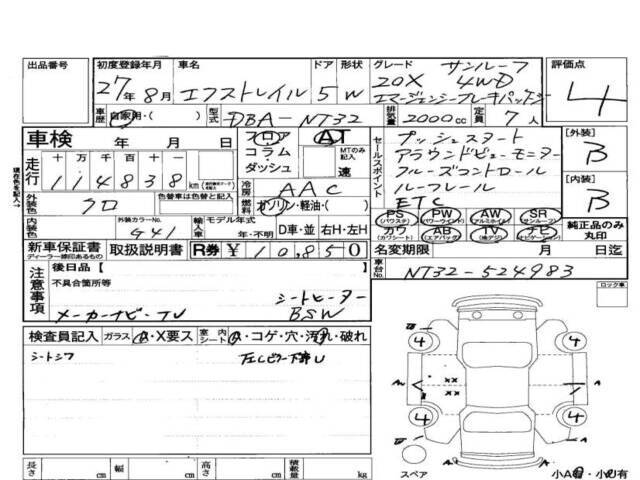 出品番号 初度登録年月 車名 ドア 形状 グレード サンルーフ 評価点
27年 8月 エクストレイル 5 W 20X 4WD 4
エマージェンシーブレーキパッケージ
車歴 自家用・( ) 型式 DBA-NT32 排気量 2000cc 定員 7人
車検 年 月 日 フロア AT
コラム・ MTのみ記入
ダッシュ 速
走行 十 万 千 百 十 一
114838 km
冷房 AAC
外装色 クロ 色替車は色替と記入 燃料 ガソリン・軽油・( )
内装色 外装カラーNo. G41 輸入車 モデル年式 年・不明 D車・並 右H・左H
セールスポイント プッシュスタート
アラウンドビューモニター
クルーズコントロール
ルーフレール
ETC
[外装] B
[内装] B
PS (パワステ) PW (パワーウインド) AW (アルミホイル) SR (サンルーフ)
カワ (カワシート) AB (エアバッグ) TV (地デジ) ナビ (ナビゲーション)
純正品のみ丸印
新車保証書 取扱説明書 R券 ¥10,850 名変期限 月 日迄
ディーラー捺印あるもの
車台No. NT32-524983
注意事項 後日品[ ]
不具合箇所等
シートヒーター
メーカーナビ・TV BSW
ロック車
検査員記入 ガラス A・X要ス 室内シート A・コゲ・穴・汚れ・破れ
シートシワ 左Cピラー下部U
4 4
A A
xx
xx
4 4
A
長さ cm 幅 cm 高さ cm 積載量 kg
スペア 小A有・小U有